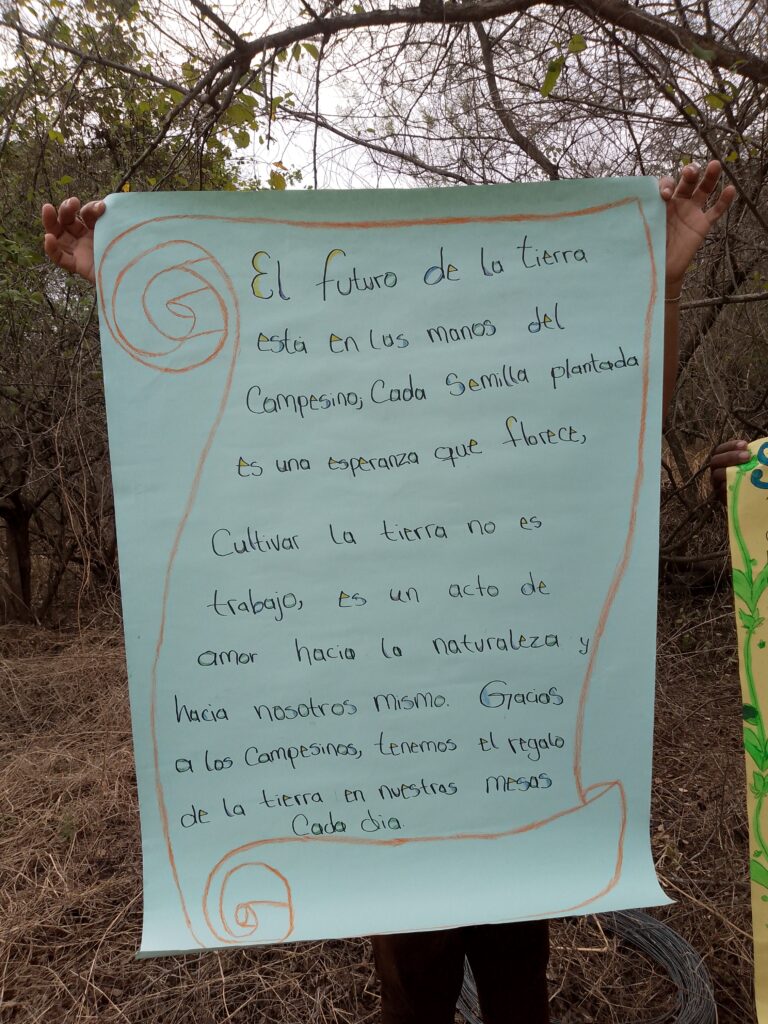 El futuro de la tierra
está en las manos del
Campesino; Cada Semilla plantada
es una esperanza que florece,
Cultivar la tierra no es
trabajo, es un acto de
amor hacia la naturaleza y
hacia nosotros mismo. Gracias
a los Campesinos, tenemos el regalo
de la tierra en nuestras mesas
Cada dia.
S